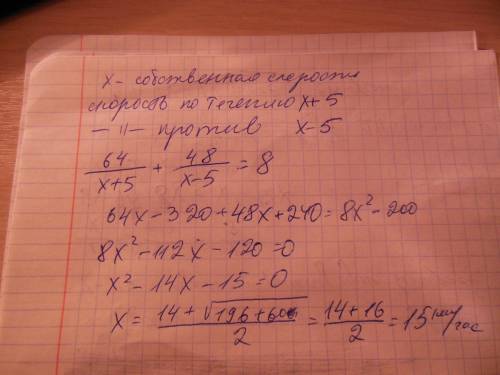 x - собственная скорость
скорость по течению x+5
—〃— против x-5
64/(x+5) + 48/(x-5) = 8
64x-320+48x+240=8x²-200
8x²-112x-120=0
x²-14x-15=0
x = (14+√(196+60))/2 = (14+16)/2 = 15 км/час